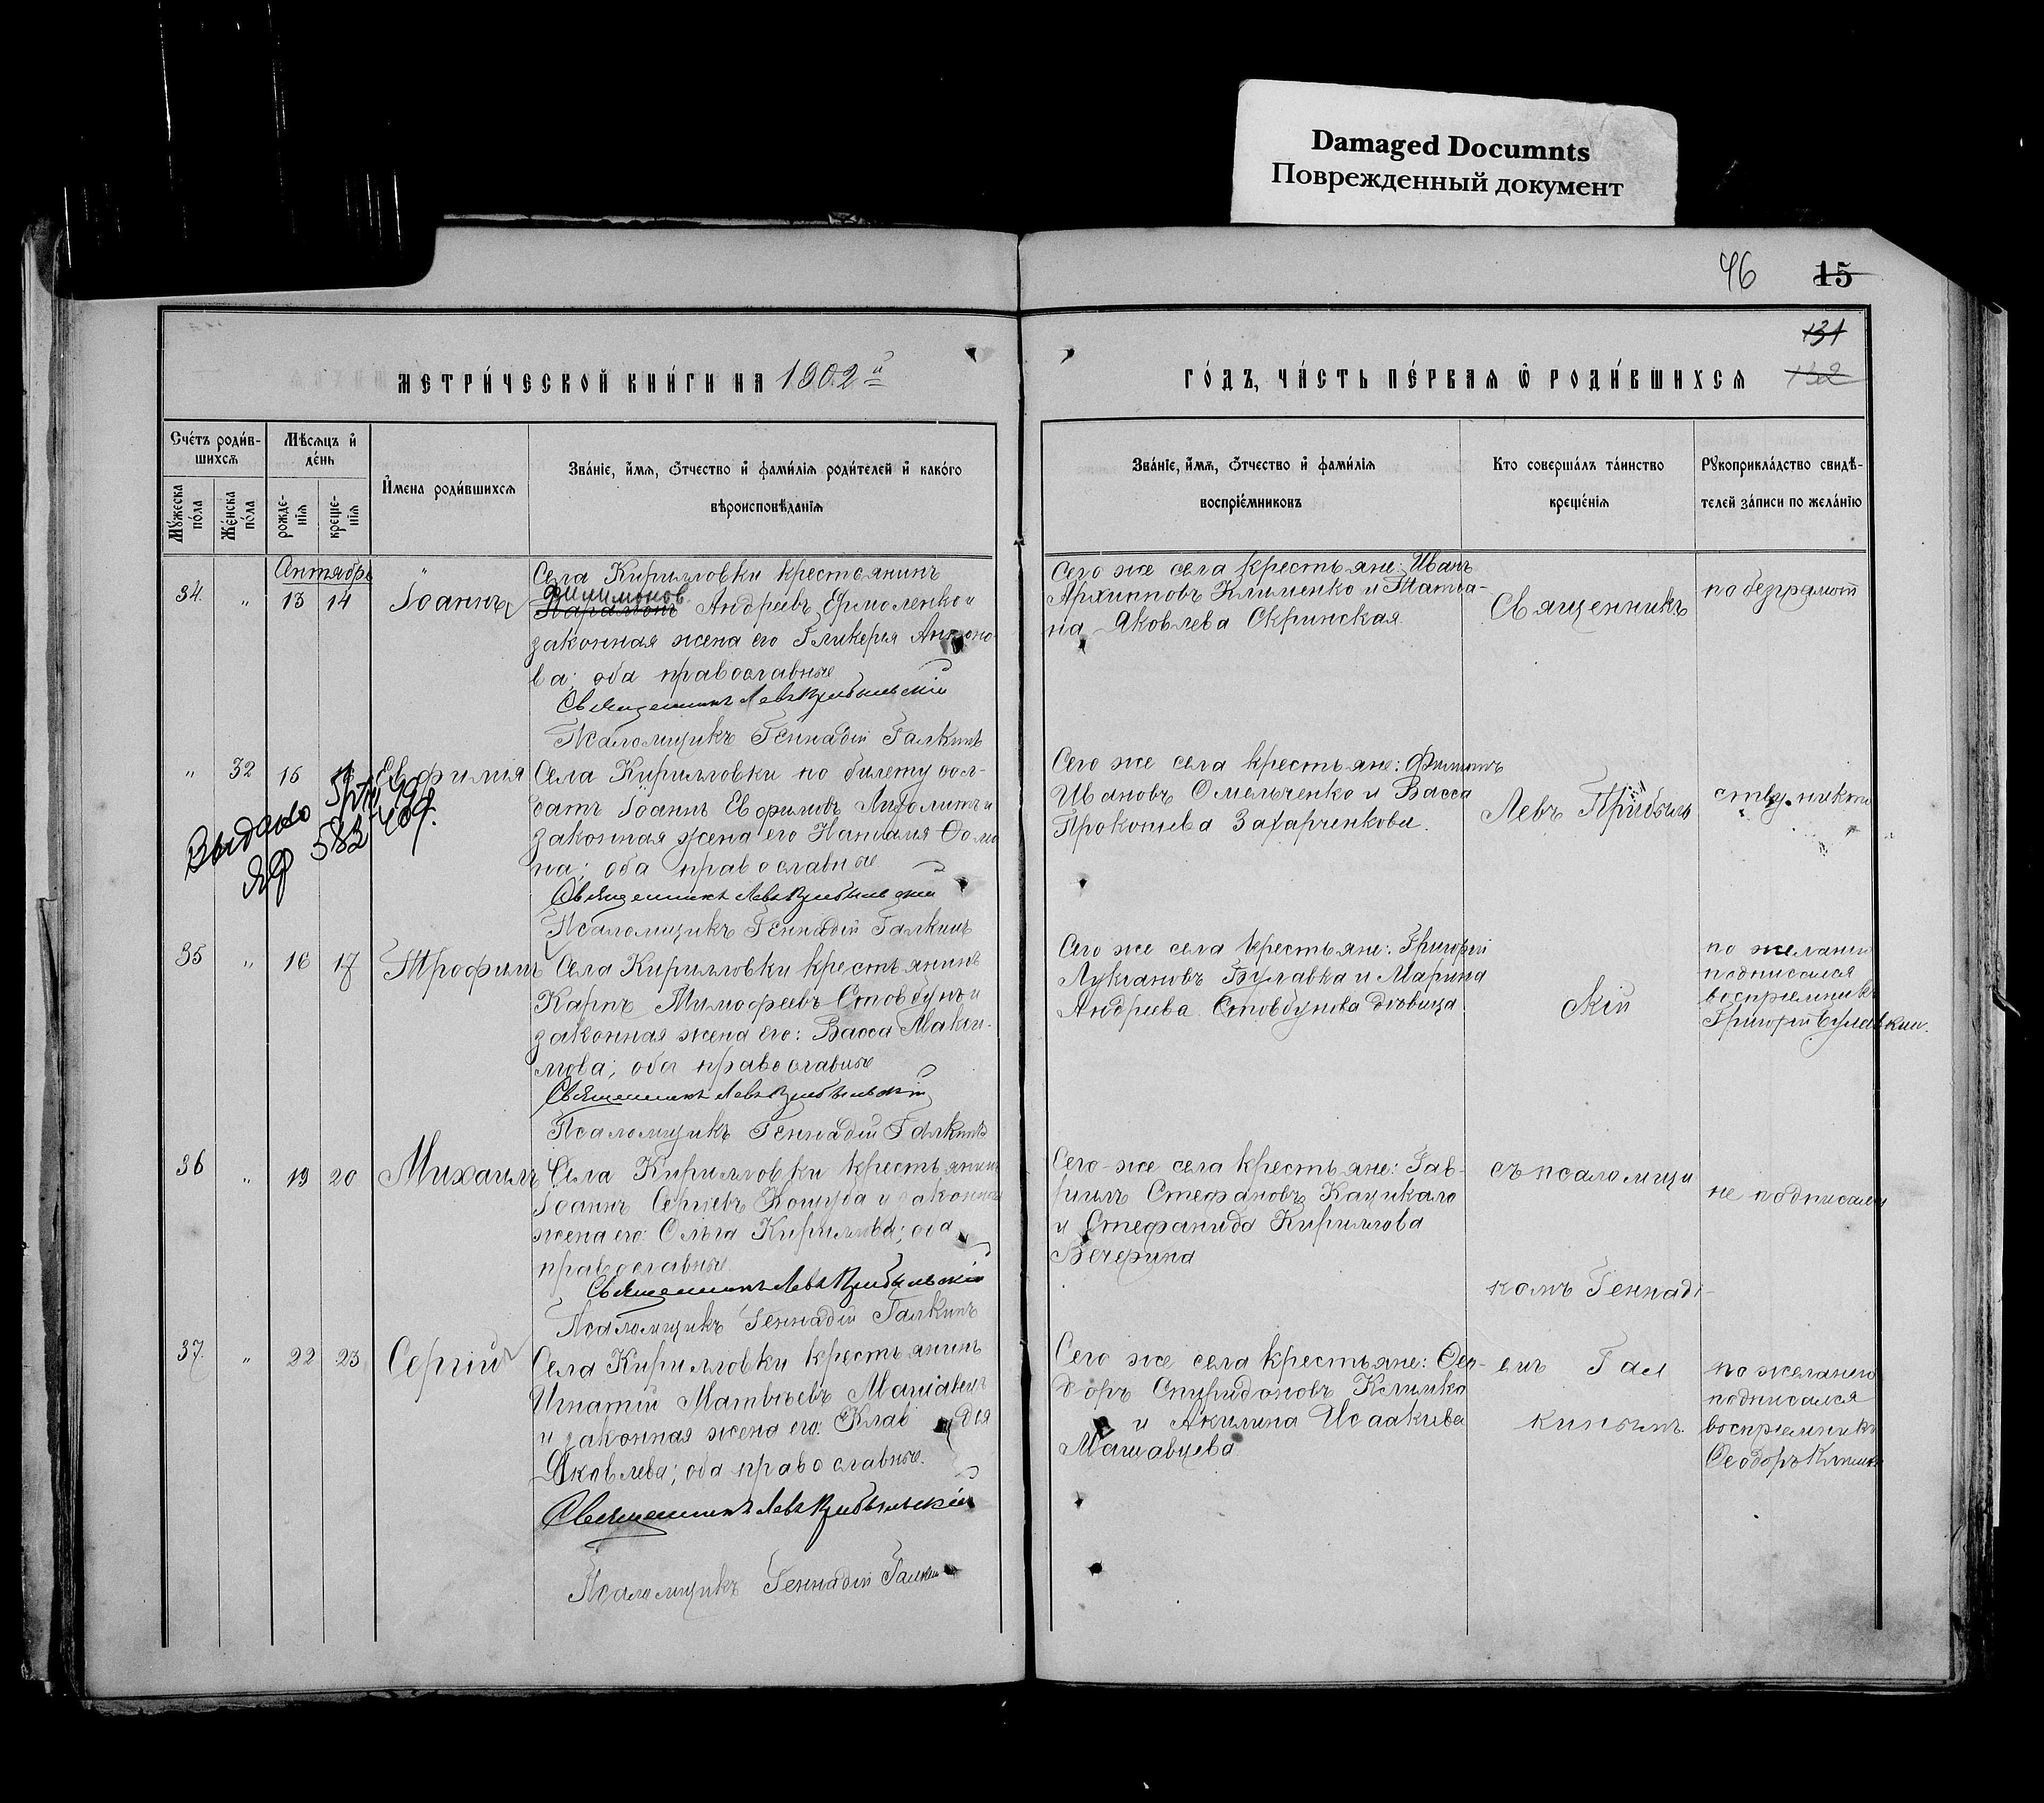 Damaged Documnts
Поврежденный документ
46 15
131
132
МЕТРИ́ЧЕСКОЙ КНИ́ГИ НА 1902й
ГО́ДЪ, ЧА́СТЬ ПЕ́РВАѦ Ѽ РОДИ́ВШИХСѦ
Сче́тъ роди́в-
шихсѧ
Мѣ́сѧцъ и҆
де́нь
Мꙋ́жеска
по́ла
Же́нска
по́ла
рожде́-
нїѧ
креще́-
нїѧ
И҆мена роди́вшихсѧ
Зва́нїе, и҆́мѧ, ѻ҆́тчество и҆ фами́лїѧ роди́телей и҆ како́го
вѣроисповѣ́данїѧ
Зва́нїе, и҆́мѧ, ѻ҆́тчество и҆ фами́лїѧ
воспрїе́мниковъ
Кто соверша́лъ та́инство
креще́нїѧ
Рꙋкоприкла́дство свидѣ́-
телей за́писи по жела́нїю
Октябрь
34. " 13 14 Іоаннъ
Села Кирилловки крестьянинъ
Филимонов
Андреевъ Ермоленко и
законная жена его Гликерія Антоно
ва; оба православные
Священникъ Левъ Прибыльскій
Псаломщикъ Геннадій Галкинъ
Сего же села крестьяне: Иванъ
Архипповъ Клименко и Татиа-
на Яковлева Скринская
Священникъ
по безграмот
" 32 15 Евфимія
Выдано
№ 582
Села Кирилловки по билету сол-
датъ Іоаннъ Евфимовъ и
законная жена его Наталія Ѳоми
на; оба православные
Священникъ Левъ Прибыльскій
Псаломщикъ Геннадій Галкинъ
Сего же села крестьяне: Филиппъ
Ивановъ Омельченко и Васса
Прокопьева Захарченкова.
Левъ Прибыль
ству никто
35 " 16 17 Трофимъ
Села Кирилловки крестьянинъ
Карпъ Тимофеевъ Стовбунъ и
законная жена его: Васса Макси-
мова; оба православные
Священникъ Левъ Прибыльскій
Псаломщикъ Геннадій Галкинъ
Сего же села крестьяне: Григорій
Лукіановъ Булавка и Марина
Андреева Стовбунова дѣвица
скій
по желанію
подписался
воспріемникъ
Григорій Булавкин.
36 " 19 20 Михаилъ
Села Кирилловки крестьянинъ
Іоаннъ Сергіевъ и законная
жена его: Ольга Кириллова; оба
православные
Священникъ Левъ Прибыльскій
Псаломщикъ Геннадій Галкинъ
Сего же села крестьяне: Гав-
риилъ Стефановъ Кацикало
и Стефанида Кириллова
Вечерина
съ псаломщи
комъ Геннаді-
не подписался
37. " 22 23 Сергій
Села Кирилловки крестьянинъ
Игнатій Матвѣевъ Машавецъ
и законная жена его: Клавдія
Яковлева; оба православные.
Священникъ Левъ Прибыльскій
Псаломщикъ Геннадій Галкинъ
Сего же села крестьяне: Ѳео-
доръ Спиридоновъ Клименко
и Акилина Исаакіева
Машавцева
емъ Гал
кинымъ.
по желанію
подписался
воспріемникъ
Ѳеодоръ Клименко